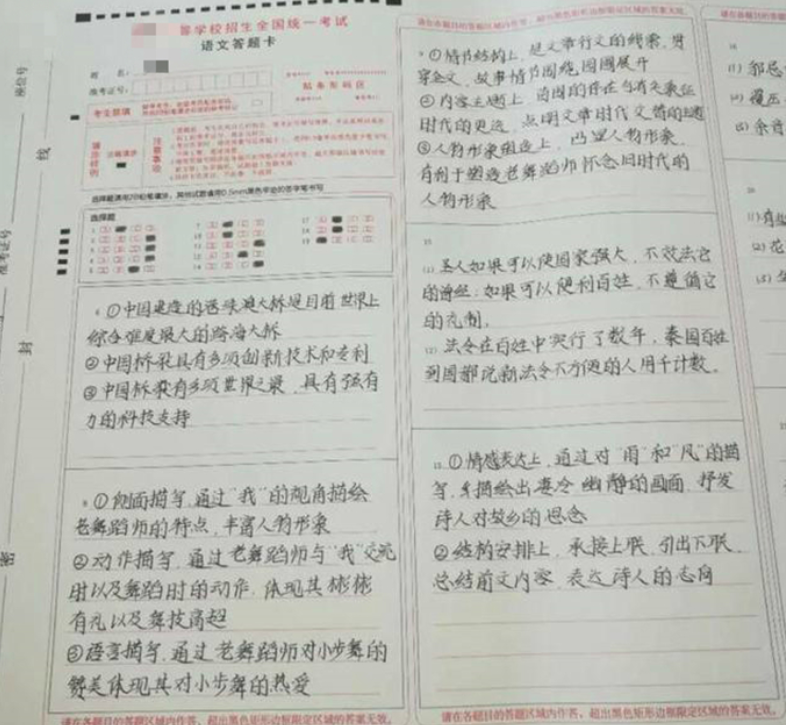 等学校招生全国统一考试
语文答题卡
姓 名:
准考证号:
贴条形码区
考生禁填
注意事项
选择题
座位号
准考证号
线
封
密
6 ①中国建造的港珠澳大桥是目前世界上
综合难度最大的跨海大桥
②中国桥梁具有多项创新技术和专利
③中国桥梁有多项世界之最,具有强有
力的科技支持
8 ①侧面描写,通过“我”的视角描绘
老舞蹈师的特点,丰富人物形象
②动作描写,通过老舞蹈师与“我”交流
时以及舞蹈时的动作,体现其彬彬
有礼以及舞技高超
③语言描写,通过老舞蹈师对小步舞的
赞美体现其对小步舞的热爱
请在各题目的答题区域内作答,超出黑色矩形边框限定区域的答案无效。
请在各题目的答题区域内作答,超出黑色矩形边框限定区域的答案无效
9 ①情节结构上,是文章行文的线索,贯
穿全文,故事情节围绕园圃展开
②内容主题上,
时代的更迭,点明文章时代交替的主题
③人物形象塑造上,凸显人物形象,
有利于塑造老舞蹈师怀念旧时代的
人物形象
13
(1) 圣人如果可以使国家强大,不效法它
的曾经;如果可以便利百姓,不遵循它
的礼制。
(2) 法令在百姓中实行了数年,秦国百姓
到国都说新法令不方便的人用千计数。
15 ①情感表达上,通过对“雨”和“风”的描
写,描绘出凄冷幽静的画面,抒发
诗人对故乡的思念
②结构安排上,承接上联,引出下联,
总结前文内容,表达诗人的志向
请在各题目的答题区域内作答,超出黑色矩形边框限定区域的答案无效。
16
(1) 邹忌
(2) 覆压
(3) 余音
(2) 花